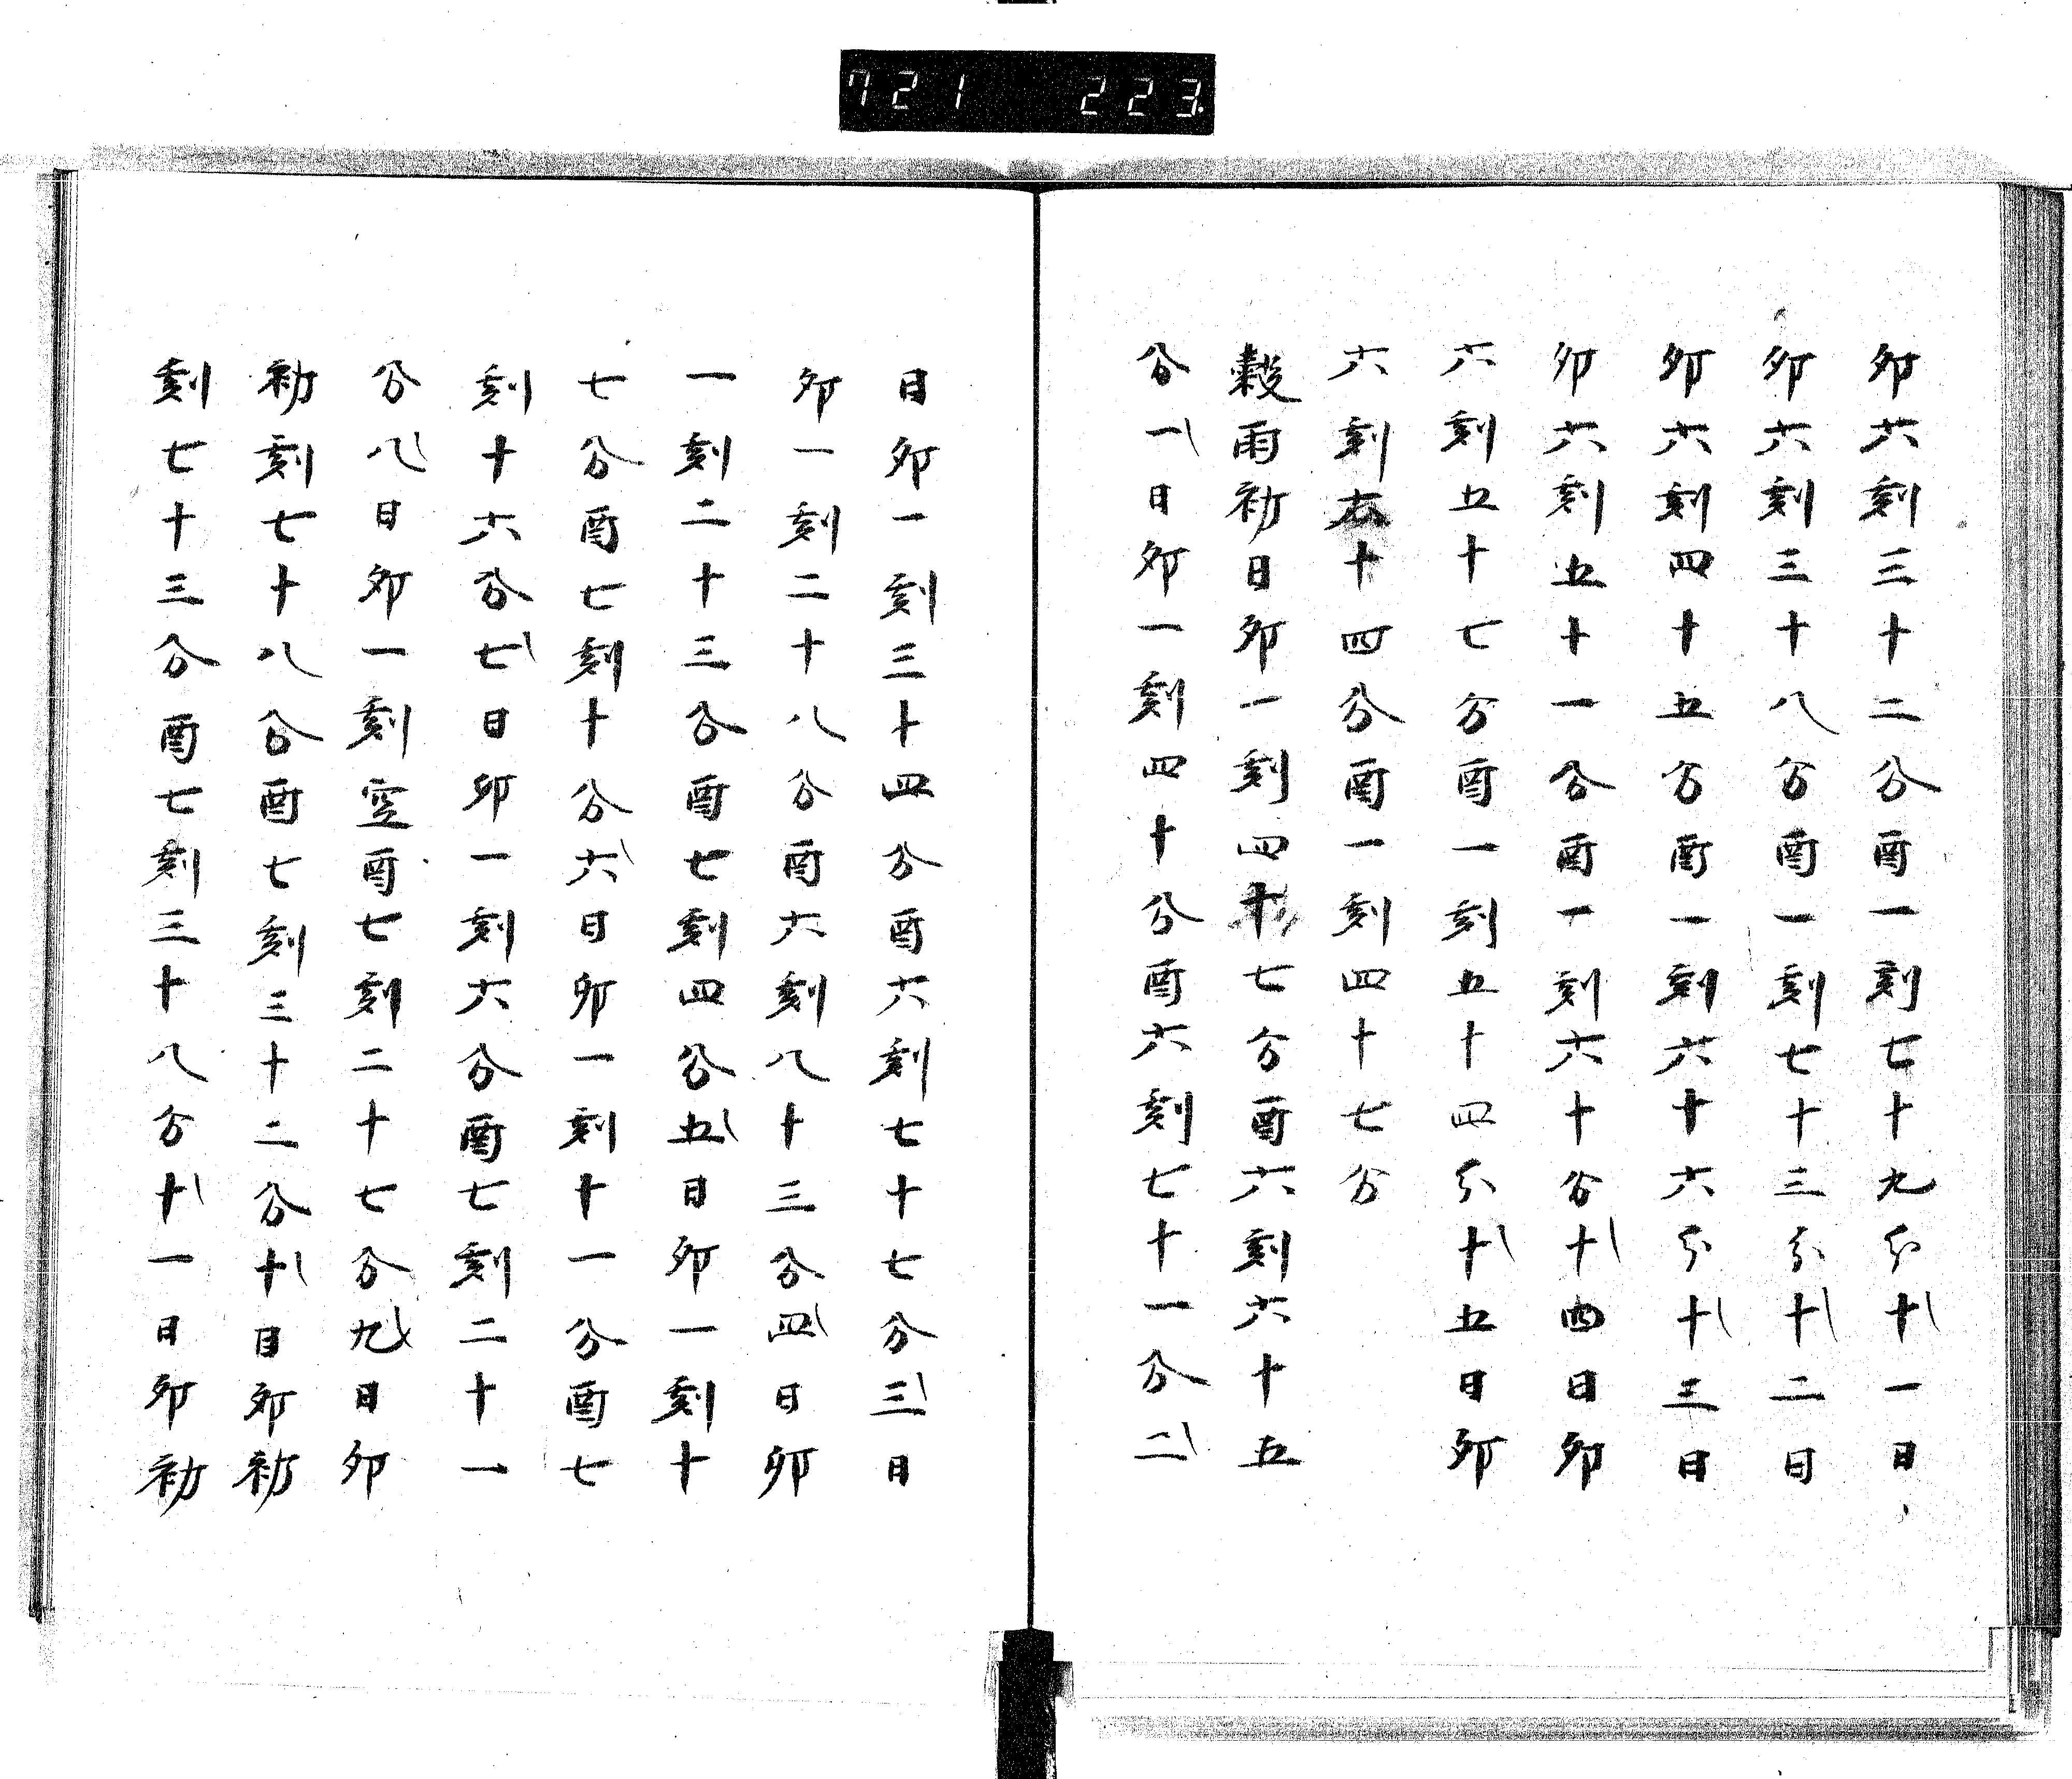 721 223
卯六刻三十二分酉一刻七十九分十一日
卯六刻三十八分酉一刻七十三分十二日
卯六刻四十五分酉一刻六十六分十三日
卯六刻五十一分酉一刻六十分十四日卯
六刻五十七分酉一刻五十四分十五日卯
六刻六十四分酉一刻四十七分
穀雨初日卯一刻四十七分酉六刻六十五
分一日卯一刻四十分酉六刻七十一分二
日卯一刻三十四分酉六刻七十七分三日
卯一刻二十八分酉六刻八十三分四日卯
一刻二十三分酉七刻四分五日卯一刻十
七分酉七刻十分六日卯一刻十一分酉七
刻十六分七日卯一刻六分酉七刻二十一
分八日卯一刻空酉七刻二十七分九日卯
初刻七十八分酉七刻三十二分十日卯初
刻七十三分酉七刻三十八分十一日卯初